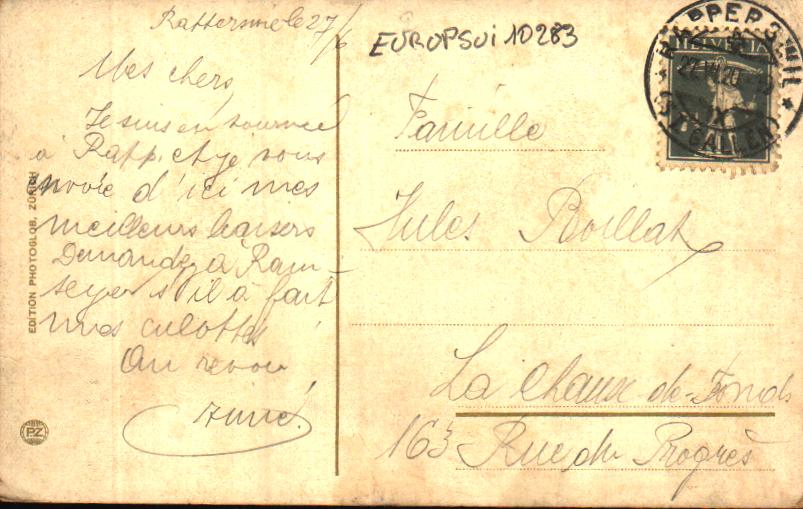 Rapperswile 27/6
EUROPSUI 10283
Mes chers,
Je suis en tournée
à Rapp. et je vous
envoie d'ici mes
meilleurs baisers
Demandez à Ram-
seyer s'il a fait
mes culottes
Au revoir
Famille
Jules Boillat
La Chaux-de-Fonds
163 Rue du Progrès
RAPPERSWIL
(ST. GALLEN)
HELVETIA
EDITION PHOTOGLOB, ZÜRICH
PZ